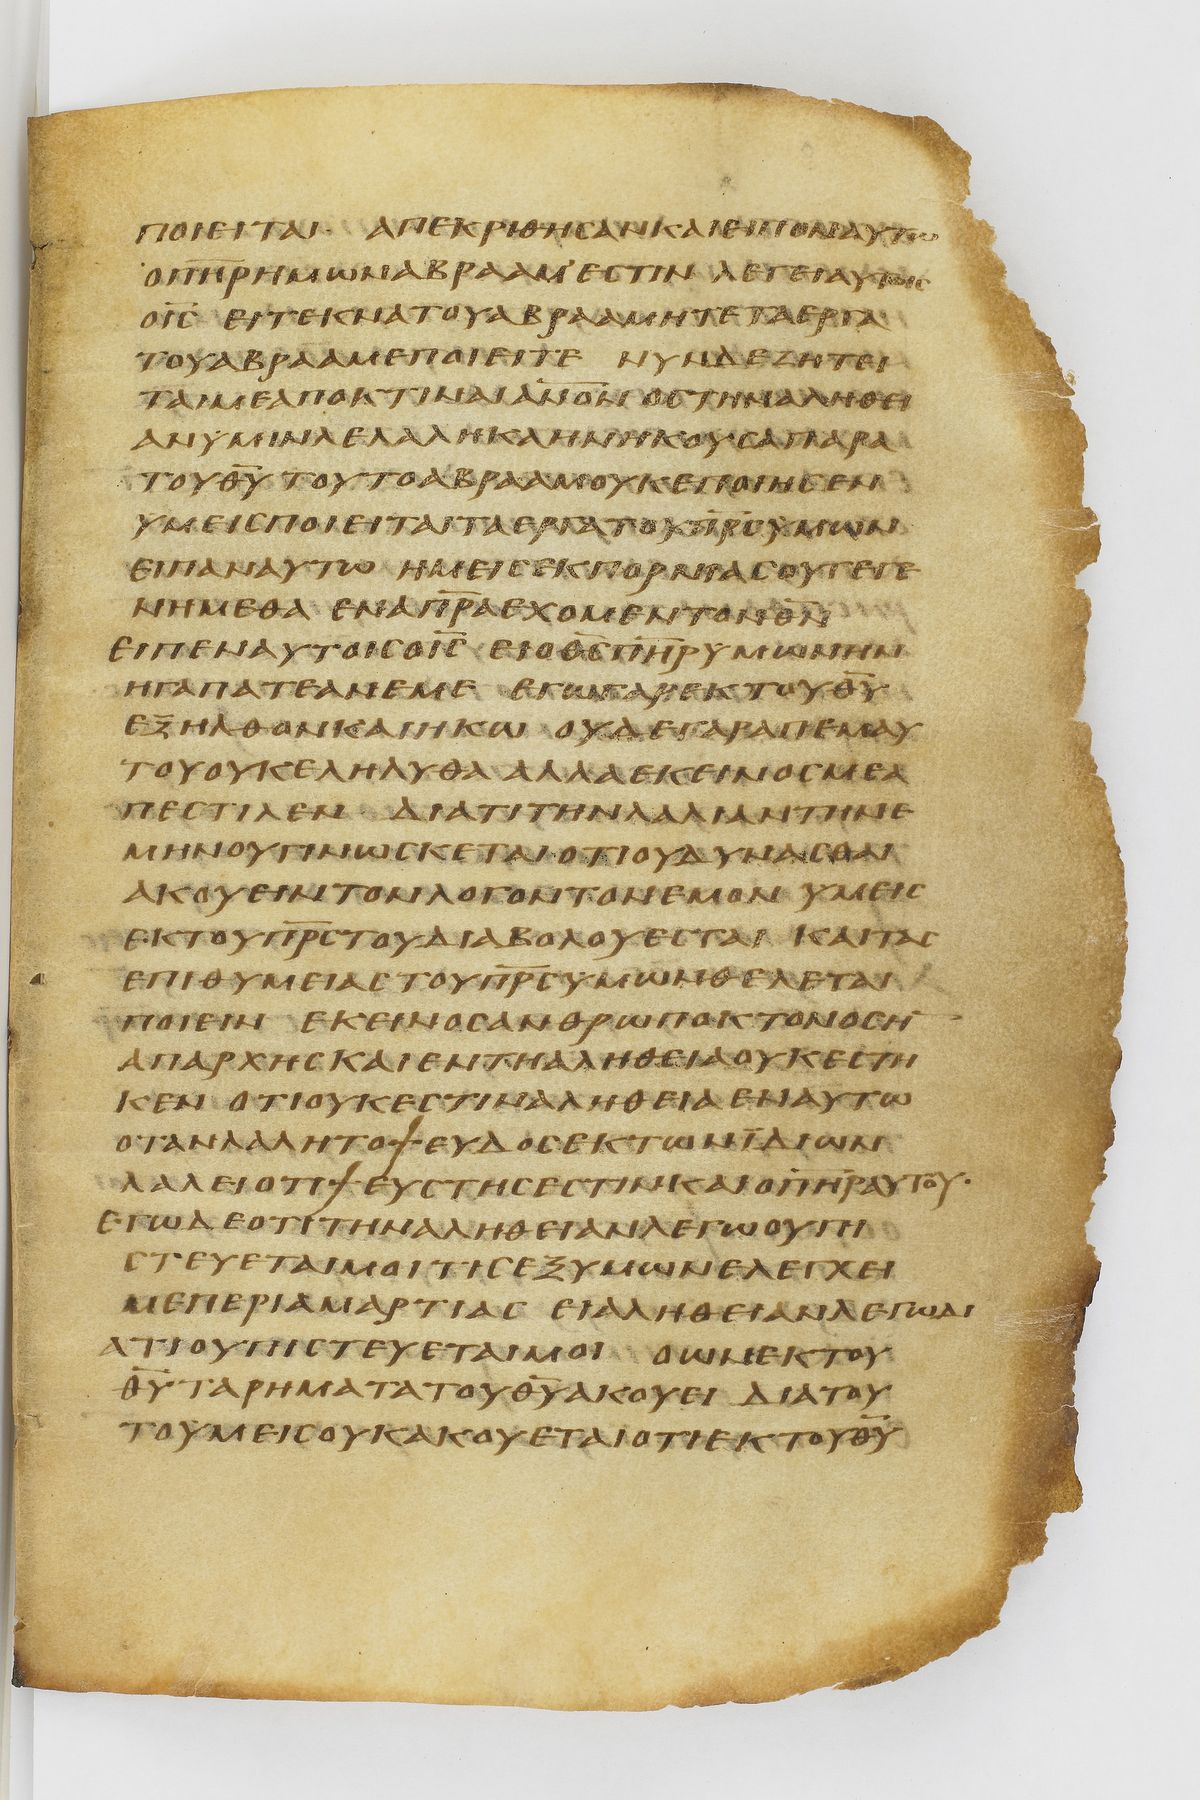 ποιειται απεκριθησανκαιειπον αυτω
οπ̅η̅ρ̅ημωναβρααμ'εστιν λεγειαυτοις
οι̅ς̅ ειτεκνατουαβρααμητεταεργα
τουαβρααμεποιειτε νυνδεζητει
ταιμεαποκτιναια̅ν̅ο̅ν̅ οςτηναληθει
ανυμινλελαληκαηνηκουσαπαρα
τουθ̅υ̅ τουτοαβρααμουκεποιησεν
υμειςποιειταιταεργατουπ̅ρ̅ς̅υμων
ειπαναυτω ημειςεκπορνιαςουγεγε
νημεθα εναπ̅ρ̅α̅εχομεντονθ̅ν̅
ειπεναυτοιςοι̅ς̅ ειοθ̅ς̅π̅η̅ρ̅υμωνην
ηγαπατεανεμε εγωγαρεκτουθ̅υ̅
εξηλθονκαιηκω ουδεγαραπεμαυ
τουουκεληλυθα αλλαεκεινοςμεα
πεστιλεν διατιτηνλαλιαντηνε
μηνουγινωσκεται οτιουδυνασθαι
ακουειντονλογοντονεμον υμεις
εκτουπ̅ρ̅ς̅τουδιαβολουεσται καιτας
επιθυμειαςτουπ̅ρ̅ς̅υμωνθελεται
ποιειν εκεινοςανθρωποκτονοςη̅
απαρχηςκαιεντηαληθειαουκεστη
κεν οτιουκεστιναληθειαεναυτω
οτανλαλητοψευδοςεκτωνϊδιων
λαλειοτιψευστηςεστινκαιοπ̅η̅ρ̅αυτου·
εγωδεοτιτηναληθειανλεγωουπι
στευεταιμοιτιςεξυμωνελεγχει
μεπεριαμαρτιας ειαληθειανλεγωδι
ατιουπιστευεταιμοι οωνεκτου
θ̅υ̅ταρηματατουθ̅υ̅ακουει διατου
τουμειςουκακουεταιοτιεκτουθ̅υ̅